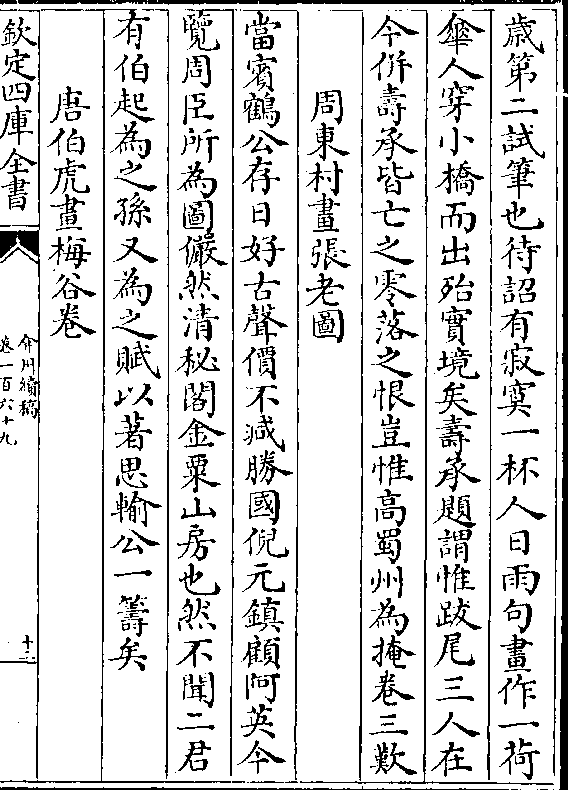 歲第二試筆也待詔有寂寞一杯人日雨句畫作一荷
傘人穿小橋而出殆實境矣壽承題謂惟跋尾三人在
今併壽承皆亡之零落之恨豈惟高蜀州為掩卷三歎
周東村畫張老圖
當賓鶴公存日好古聲價不減勝國倪元鎮顧阿英今
覽周臣所為圖儼然清秘閣金粟山房也然不聞二君
有伯起為之孫又為之賦以著思輸公一籌矣
唐伯虎畫梅谷卷
欽定四庫全書
弇州續稿
卷一百六十九
十二